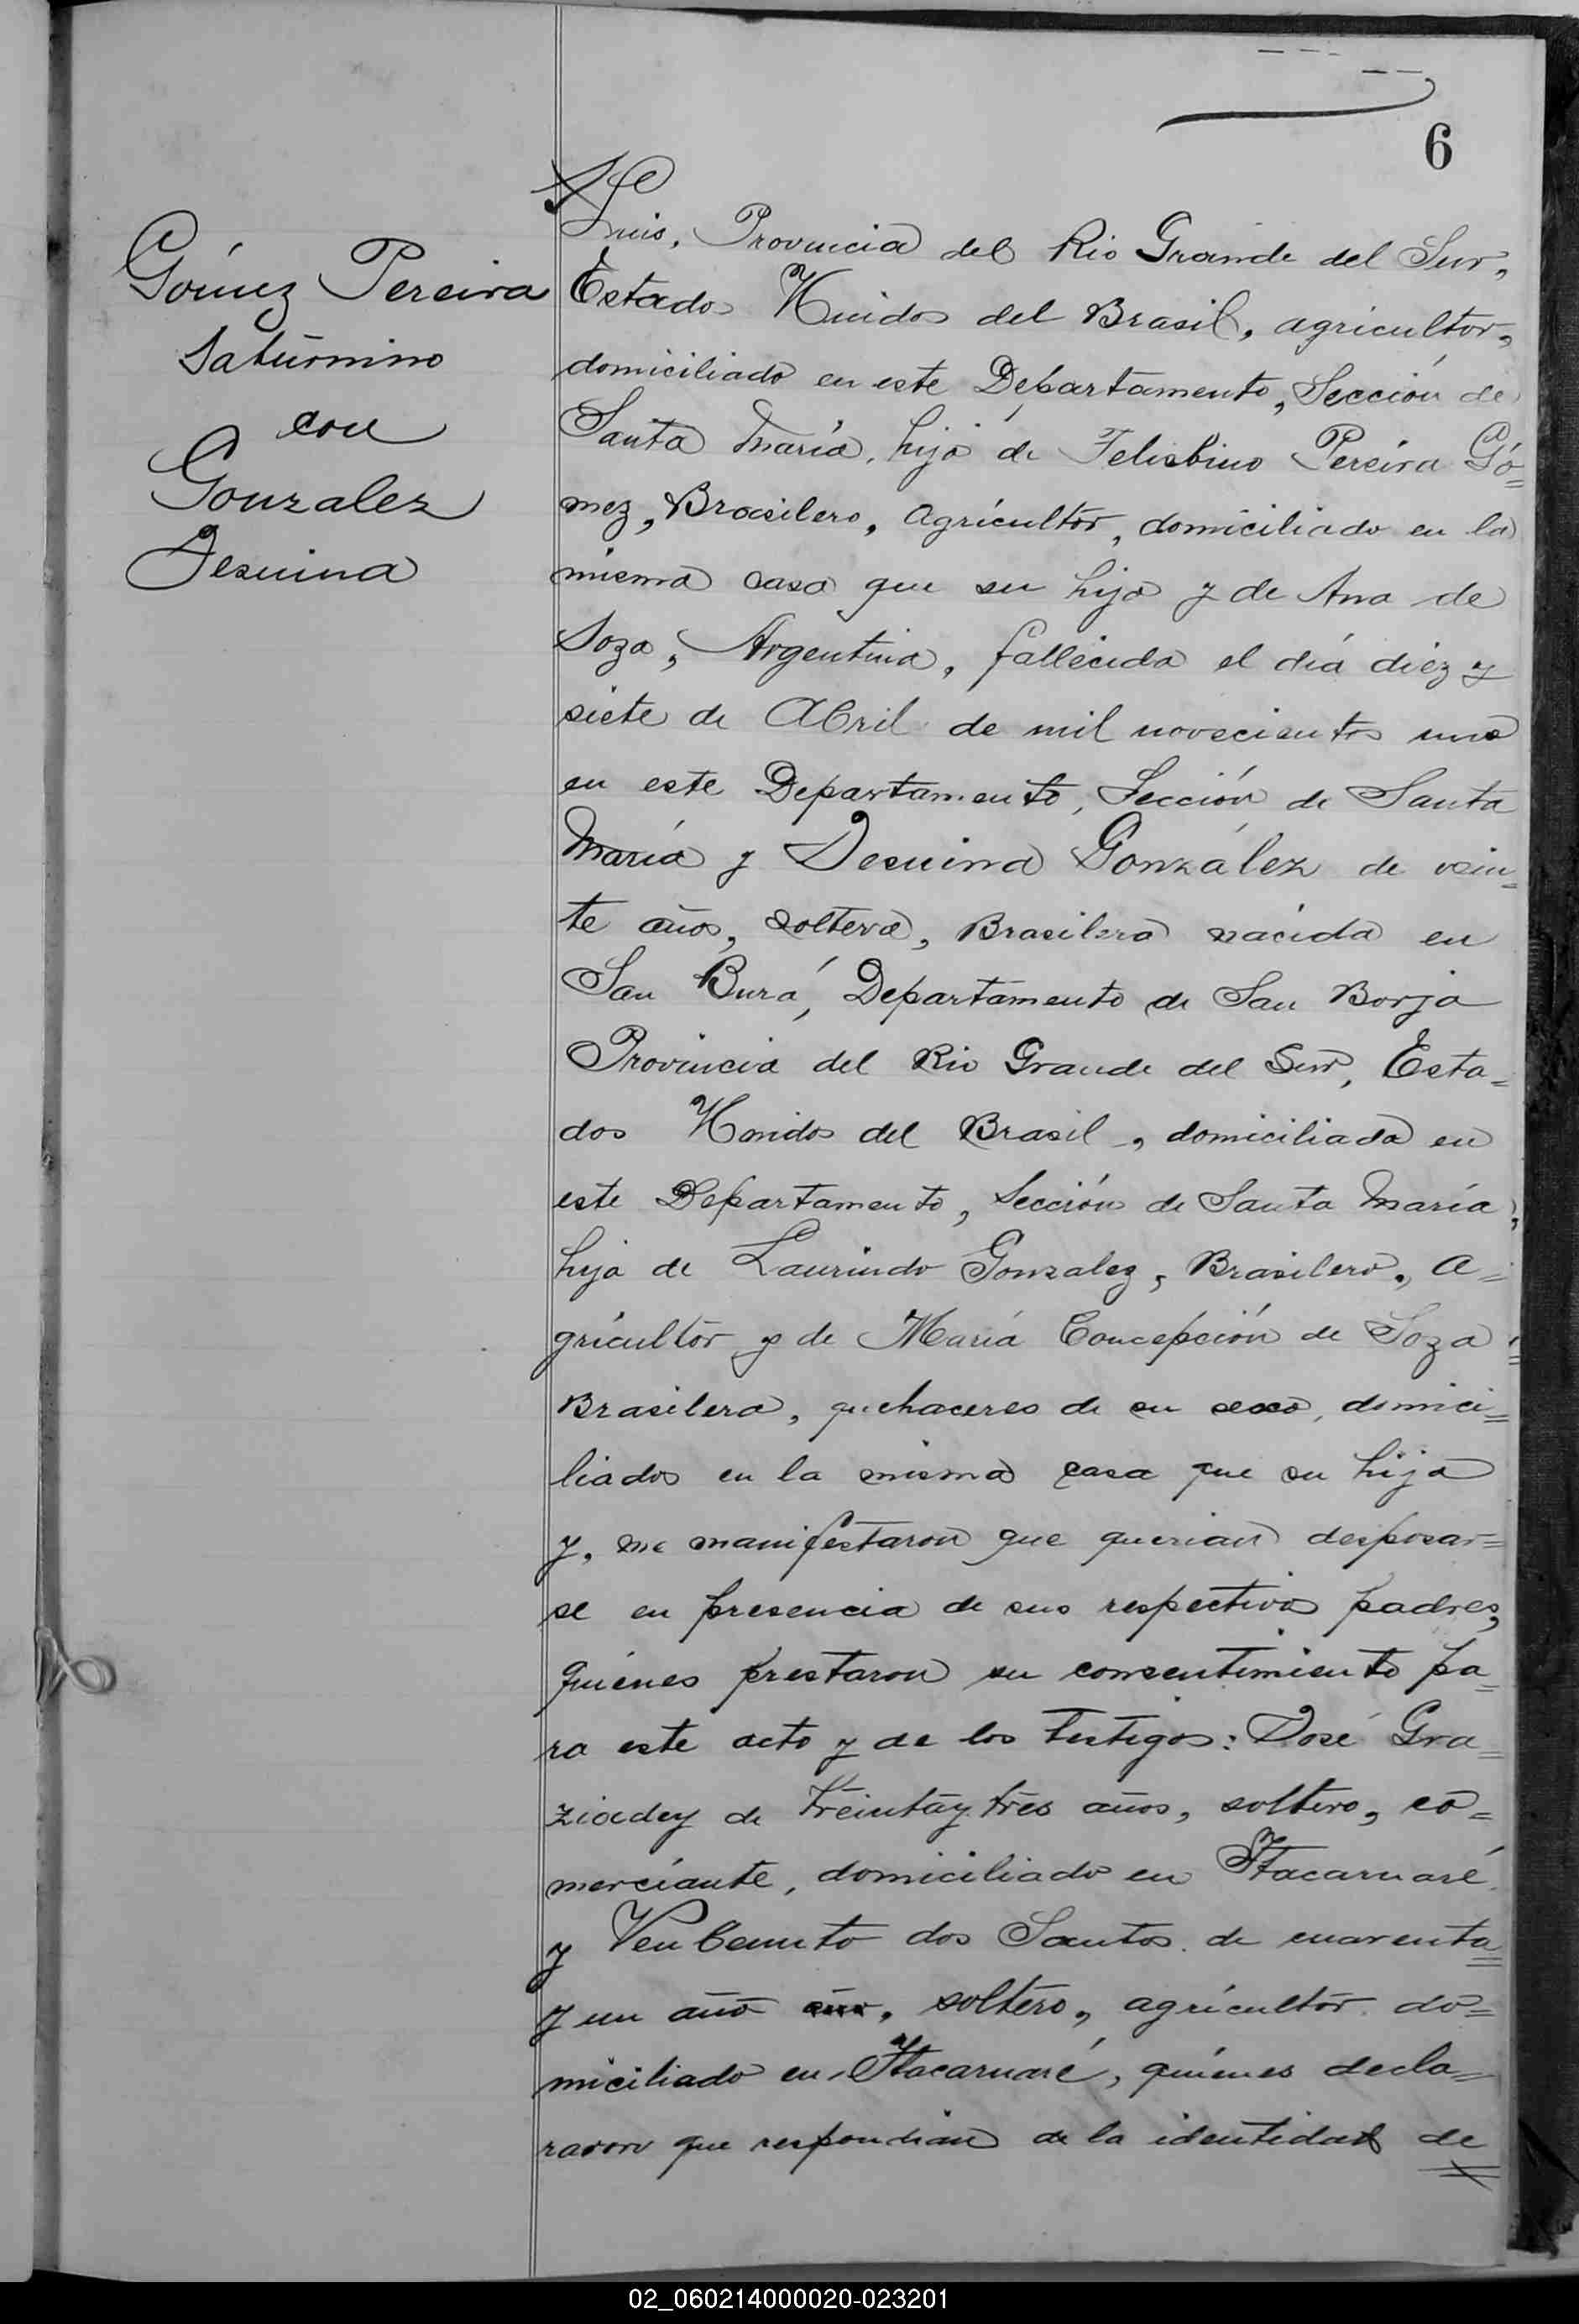 6
Gómez Pereira
Saturnino
con
Gonzalez
Jesuina
Luis, Provincia del Rio Grande del Sur,
Estados Unidos del Brasil, agricultor,
domiciliado en este Departamento, Sección de
Santa María, hijo de Felisbino Pereira Gó=
mez, Brasilero, agricultor, domiciliado en la
misma casa que su hijo y de Ana de
Soza, Argentina, fallecida el día diez y
siete de Abril de mil novecientos uno
en este Departamento, Sección de Santa
María y Jesuina González de vein=
te años, soltera, Brasilera nacida en
San Burá, Departamento de San Borja
Provincia del Rio Grande del Sur, Esta=
dos Unidos del Brasil, domiciliada en
este Departamento, Sección de Santa María,
hija de Laurindo Gonzalez, Brasilero, a=
gricultor y de María Concepción de Soza
Brasilera, quehaceres de su sexo, domici=
liados en la misma casa que su hija
y, me manifestaron que querian desposar=
se en presencia de sus respectivos padres,
quienes prestaron su consentimiento pa=
ra este acto y de los testigos: José Gra=
ziadey de treinta y tres años, soltero, co=
merciante, domiciliado en Itacaruaré
y Venbenuto dos Santos de cuarenta
y un año, soltero, agricultor do=
miciliado en Itacaruaré, quienes decla=
raron que respondian de la identidad de
02_060214000020-023201